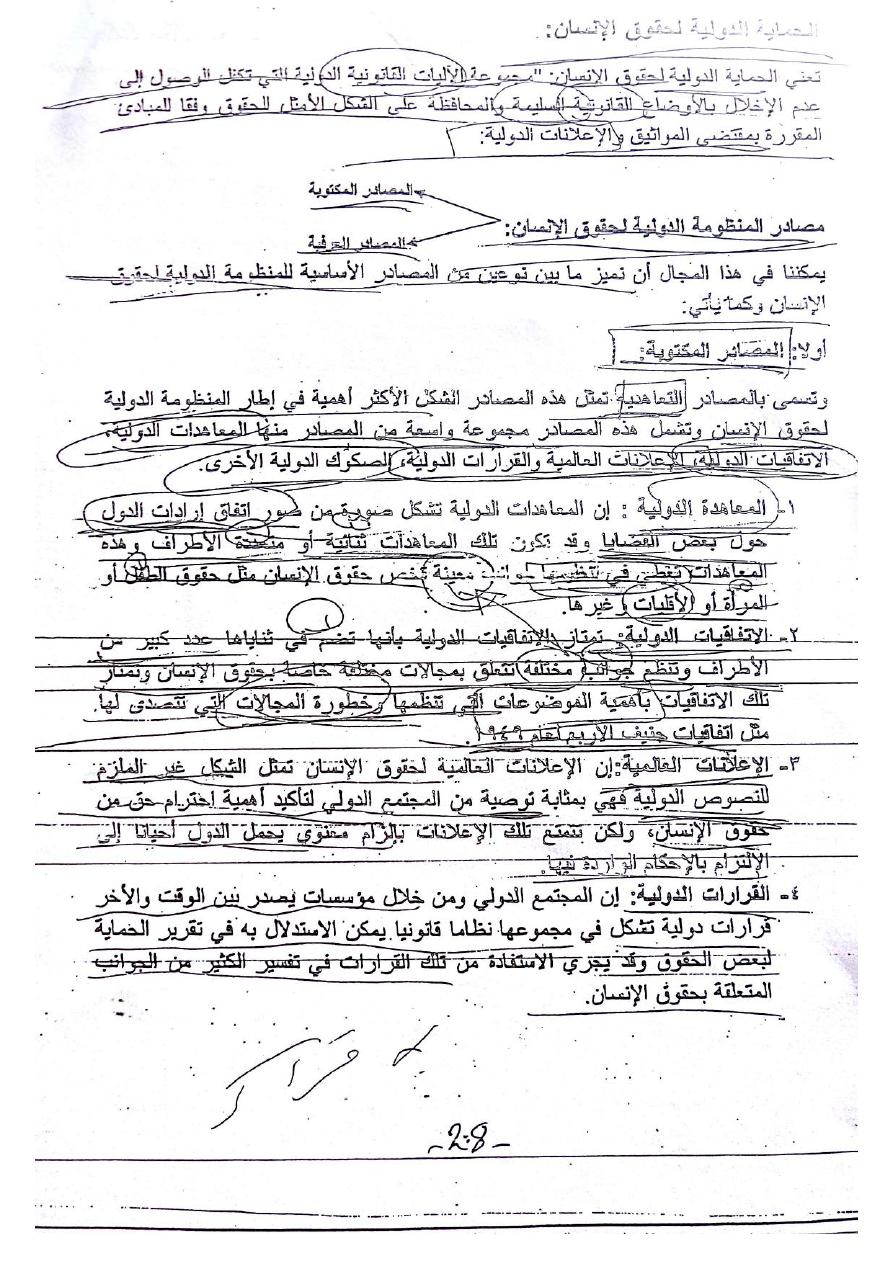 الحماية الدولية لحقوق الإنسان:
تعني الحماية الدولية لحقوق الإنسان: "مجموعة الآليات القانونية الدولية التي تكفل الوصول إلى
عدم الإخلال بالأوضاع القانونية السليمة والمحافظة على الشكل الأمثل للحقوق وفقا للمبادئ
المقررة بمقتضى المواثيق والإعلانات الدولية:
المصادر المكتوبة
مصادر المنظومة الدولية لحقوق الإنسان:
المصادر العرفية
يمكننا في هذا المجال أن نميز ما بين نوعين من المصادر الأساسية للمنظومة الدولية لحقوق
الإنسان وكما يأتي:
أولا: المصادر المكتوبة:
وتسمى بالمصادر التعاهدية تمثل هذه المصادر الشكل الأكثر أهمية في إطار المنظومة الدولية
لحقوق الإنسان وتشمل هذه المصادر مجموعة واسعة من المصادر منها المعاهدات الدولية،
الاتفاقيات الدولية، الإعلانات العالمية والقرارات الدولية، الصكوك الدولية الأخرى.
١- المعاهدة الدولية : إن المعاهدات الدولية تشكل صورة من صور اتفاق إرادات الدول
حول بعض القضايا وقد تكون تلك المعاهدات ثنائية أو متعددة الأطراف وهذه
المعاهدات تغطي في تنظيمها جوانب معينة تخص حقوق الإنسان مثل حقوق الطفل أو
المرأة أو الأقليات وغيرها.
٢- الاتفاقيات الدولية: تمتاز الاتفاقيات الدولية بأنها تضم في ثناياها عدد كبير من
الأطراف وتنظم جوانب مختلفة تتعلق بمجالات مختلفة خاصة بحقوق الإنسان وتمتاز
تلك الاتفاقيات بأهمية الموضوعات التي تنظمها وخطورة المجالات التي تتصدى لها.
مثل اتفاقيات جنيف الأربع لعام ١٩٤٩.
٣- الإعلانات العالمية: إن الإعلانات العالمية لحقوق الإنسان تمثل الشكل غير الملزم
للنصوص الدولية فهي بمثابة توصية من المجتمع الدولي لتأكيد أهمية احترام حق من
حقوق الإنسان، ولكن تتمتع تلك الإعلانات بإلزام معنوي يحمل الدول أحيانا إلى
الإلتزام بالإحكام الواردة فيها.
٤- القرارات الدولية: إن المجتمع الدولي ومن خلال مؤسسات يصدر بين الوقت والأخر
قرارات دولية تشكل في مجموعها نظاما قانونيا يمكن الاستدلال به في تقرير الحماية
لبعض الحقوق وقد يجري الاستفادة من تلك القرارات في تفسير الكثير من الجوانب
المتعلقة بحقوق الإنسان.
-28-